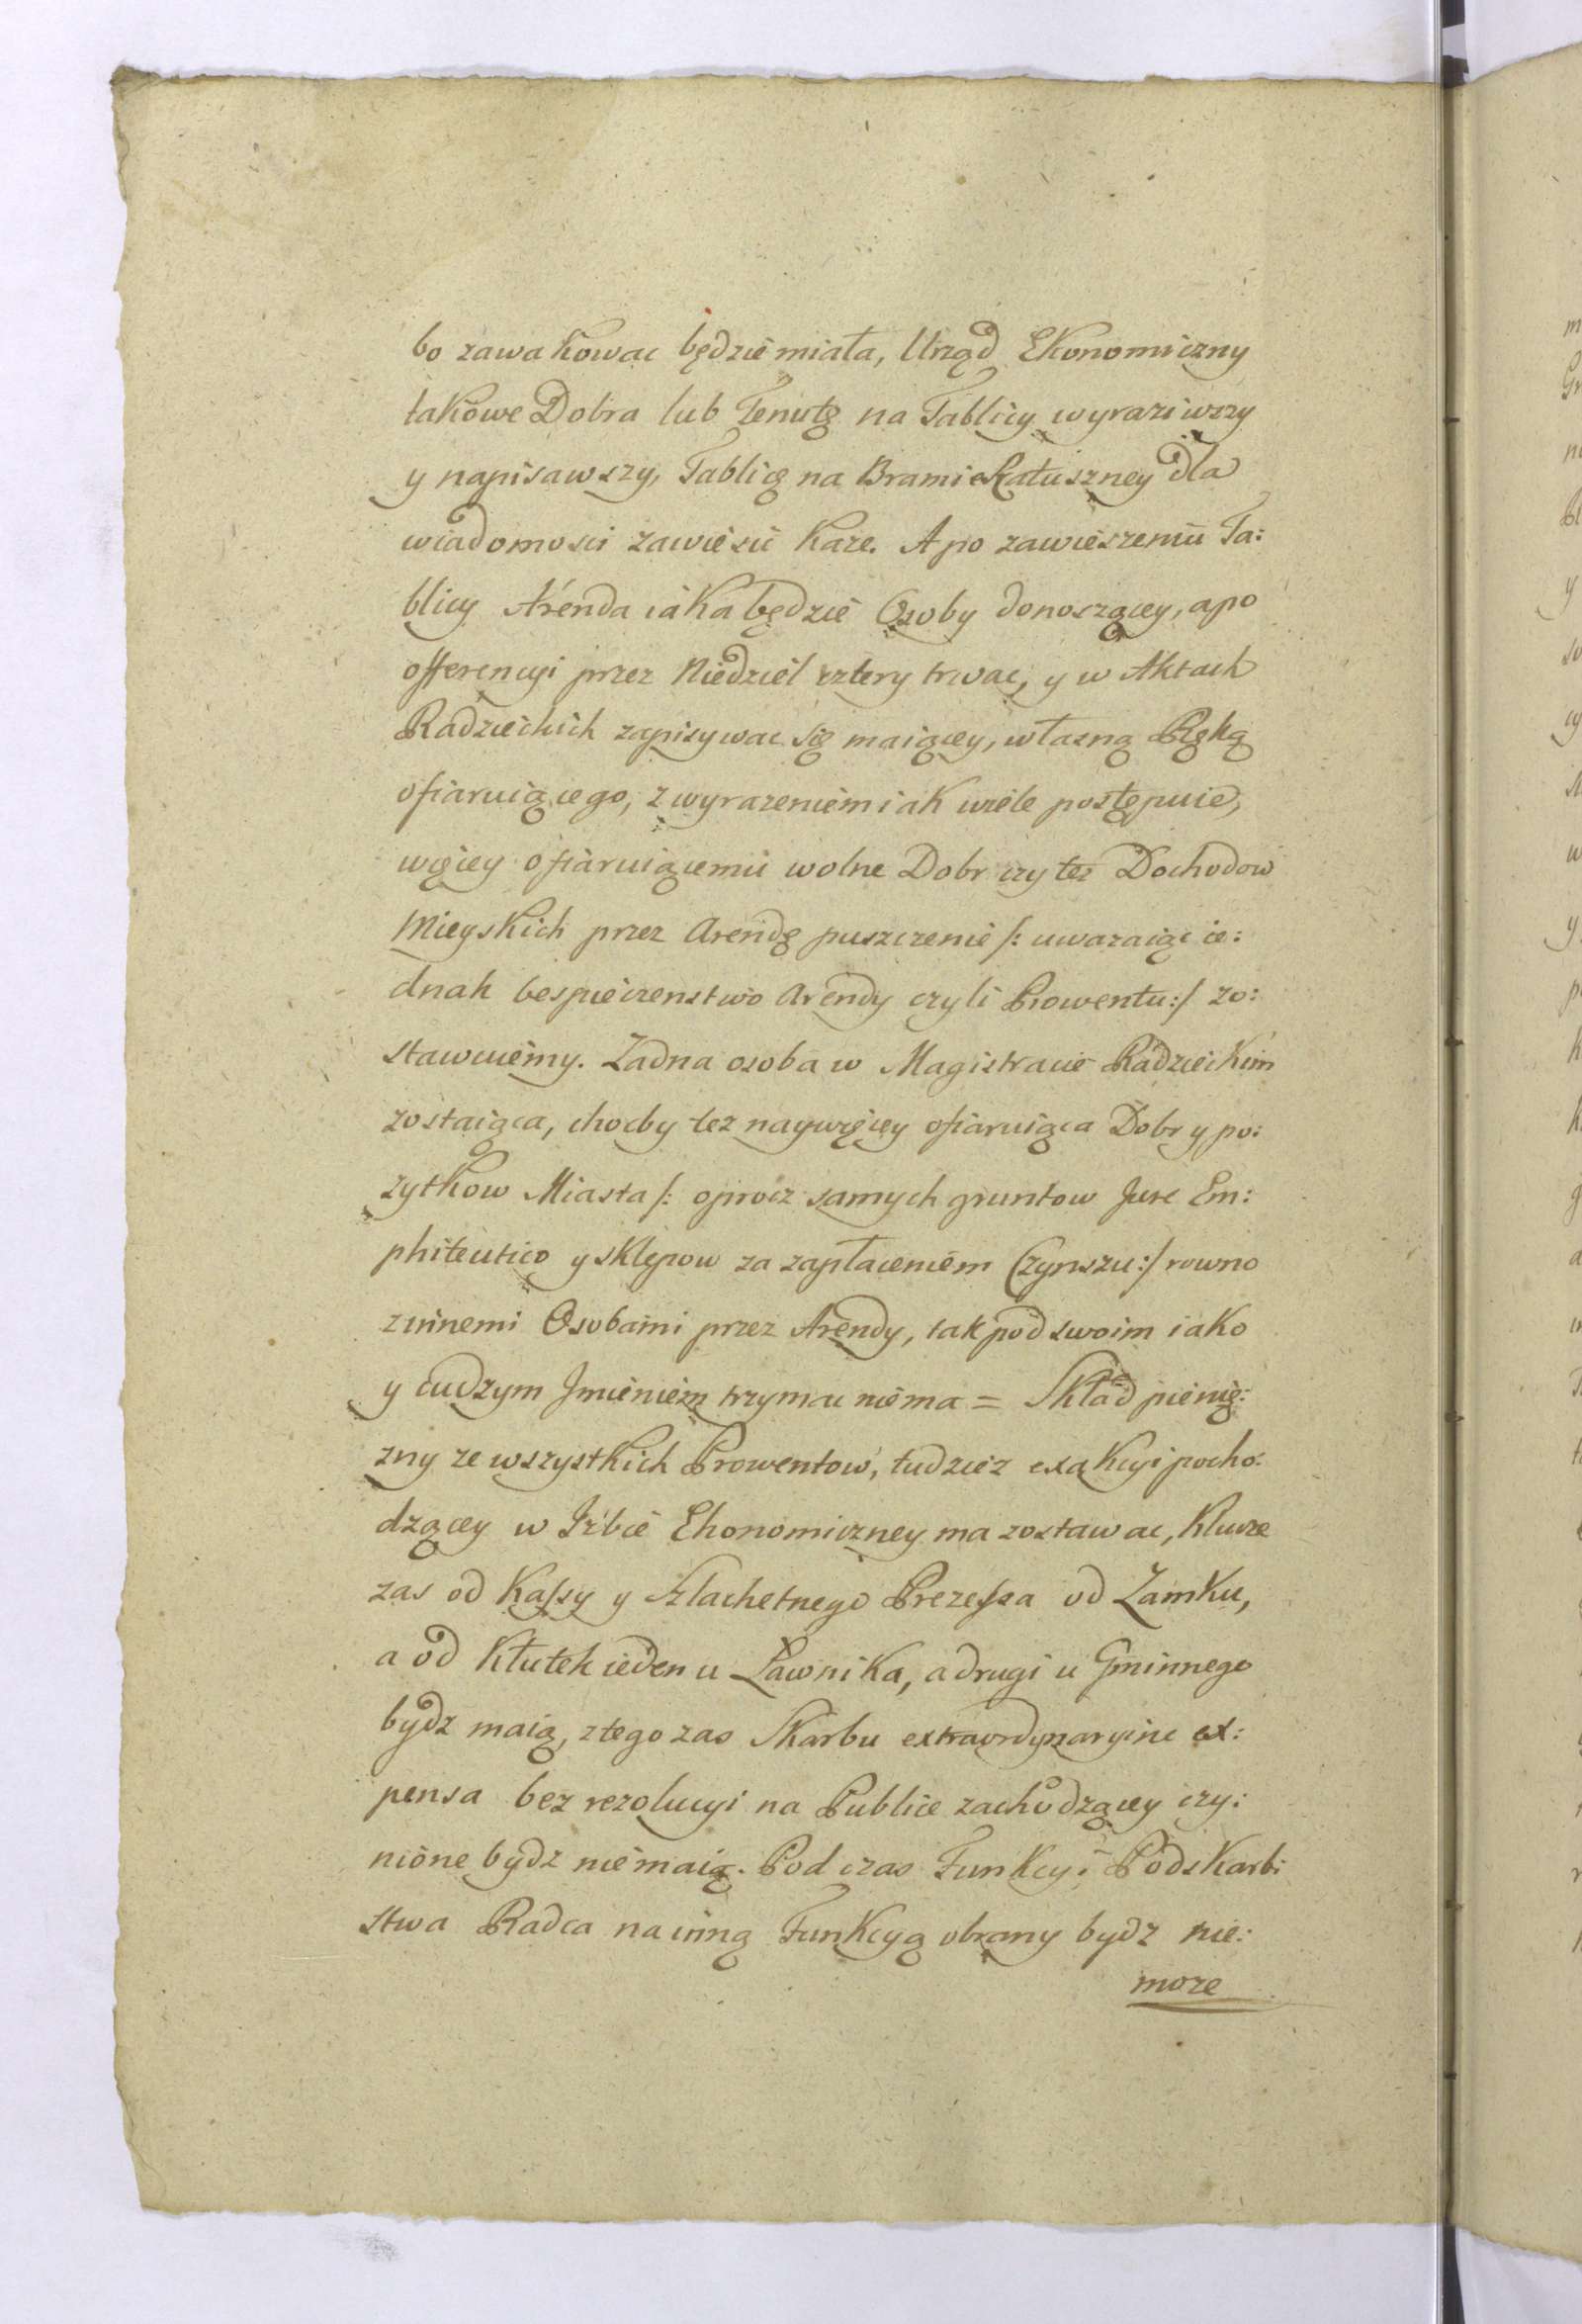 bo zawakowac będzie miała, Urząd Ekonomiczny
takowe Dobra lub Tenutę na Tablicy wyraziwszy
y napisawszy, Tablicę na Bramie Ratuszney dla
wiadomosci zawiesic każe. A po zawieszeniu Ta:
blicy Arenda iaka będzie Osoby donoszącey, a po
offerencyi przez Niedziel cztery trwac, y w Aktach
Radzieckich zapisywac się maiącey, własną Ręką
ofiaruiącego, z wyrazeniem iak wiele postępuie,
więcey ofiaruiącemu wolne Dobr czy tez Dochodow
Mieyskich przez Arendę puszczenie /: uwazaiąc ie:
dnak bespieczenstwo Arendy czyli Prowentu:/ zo:
stawuiemy. Zadna osoba w Magistracie Radzieckim
zostaiąca, chocby tez naywięcey ofiaruiąca Dobr y po:
zytkow Miasta /: oprocz samych gruntow Jure Em:
phiteutico y sklepow za zapłaceniem Czynszu:/ rowno
z innemi Osobami przez Arendy, tak pod swoim iako
y cudzym Imieniem trzymac niema = Skład pienię:
zny ze wszystkich Prowentow, tudziez exakcyi pocho:
dzącey w Izbie Ekonomiczney ma zostawac, Klucze
zas od Kassy y Szlachetnego Prezessa od Zamku,
a od Kłutek ieden u Ławnika, a drugi u Gminnego
bydz maią, z tego zas Skarbu extraordynaryine ex:
pensa bez rezolucyi na Publice zachodzącey czy:
nione bydz niemaią. Pod czas Funkcyi Podskarbi
stwa Radca na inną Funkcyą obrany bydz nie:
moze